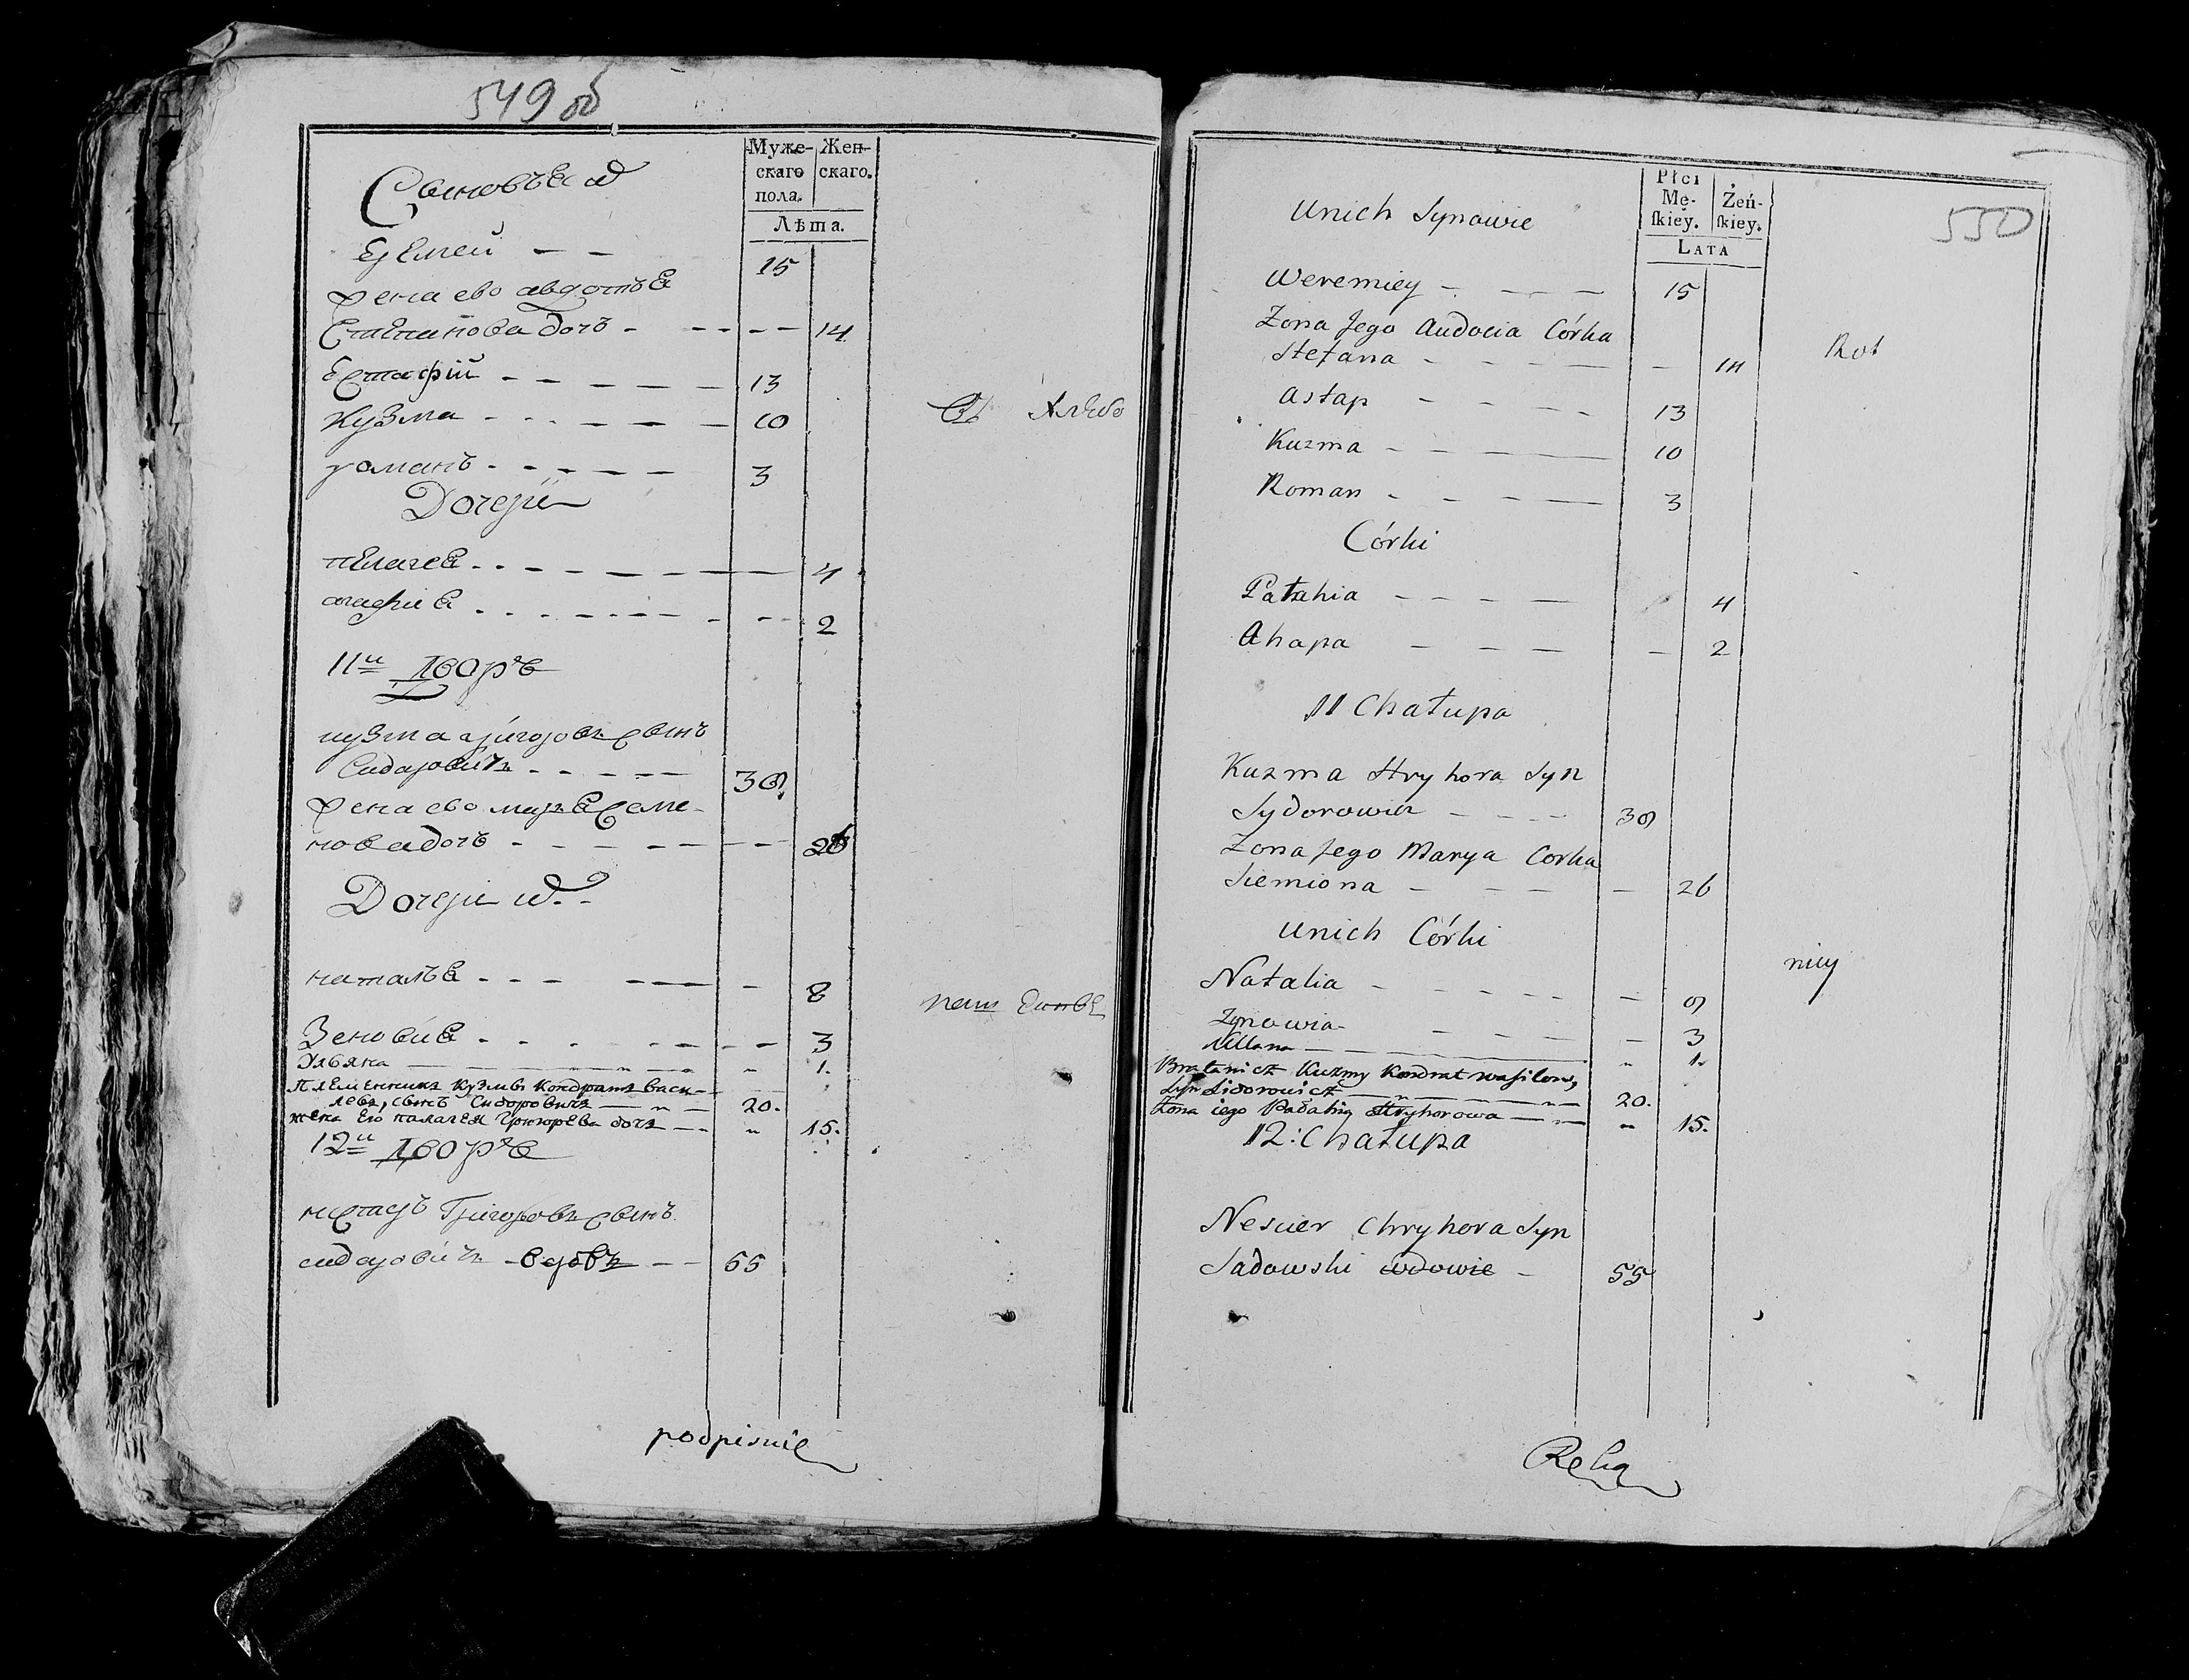 549 об
Муже-
скаго
пола.
Жен-
скаго.
Лѣта.
Сыновъя
Еремей - - 15
жена ево авдотъя
Степанова дочъ - - - - 14
Естафiй - - - - - 13
Кузма - - - - - - 10
романъ - - - - - 3
Дочери
пелагея - - - - - - - 4
агафия - - - - - - - 2
11й Дворъ
кузма григоровъ сынъ
Сидаровичъ - - - - - 39
жена ево маръя Семе-
нова дочъ - - - - - - 26
Дочери
наталъя - - - - - - 8
Зеновия - - - - - - - 3
Ульяна - - - - 1.
Племенникъ Кузмы Кондратъ Васи-
левъ, сынъ Сидоровичъ - - - 20.
жена Его палагея Григорева дочъ - - 15.
12й Дворъ
нестаръ Григоровъ сынъ
сидаровичъ - вдовъ - - 55
podpisuie
Płci
Mę-
ſkiey.
Żeń-
ſkiey.
LATA
550
Unich Synowie
Weremiey - - - 15
Zona Jego Audocia Córka
Stefana - - - - - 14
Rot
Astap - - - - 13
Kuzma - - - - 10
Roman - - - - 3
Córki
Pałahia - - - - 4
Ahapa - - - - 2
11 Chałupa
Kuzma Hryhora Syn
Sydorowicz - - - - 39
Zona Jego Marya Corka
Siemiona - - - - 26
Unich Córki
Natalia - - - - - 9
Zynowia - - - - 3
Ullana - - - - 1.
Bratanicz Kuzmy Kondrat Wasilow,
Syn Sidorowicz - - - - 20.
Żona iego Pałahia Hryhorowa - - - 15.
12: Chałupa
Nescier Chryhora Syn
Sadowski wdowie - 55